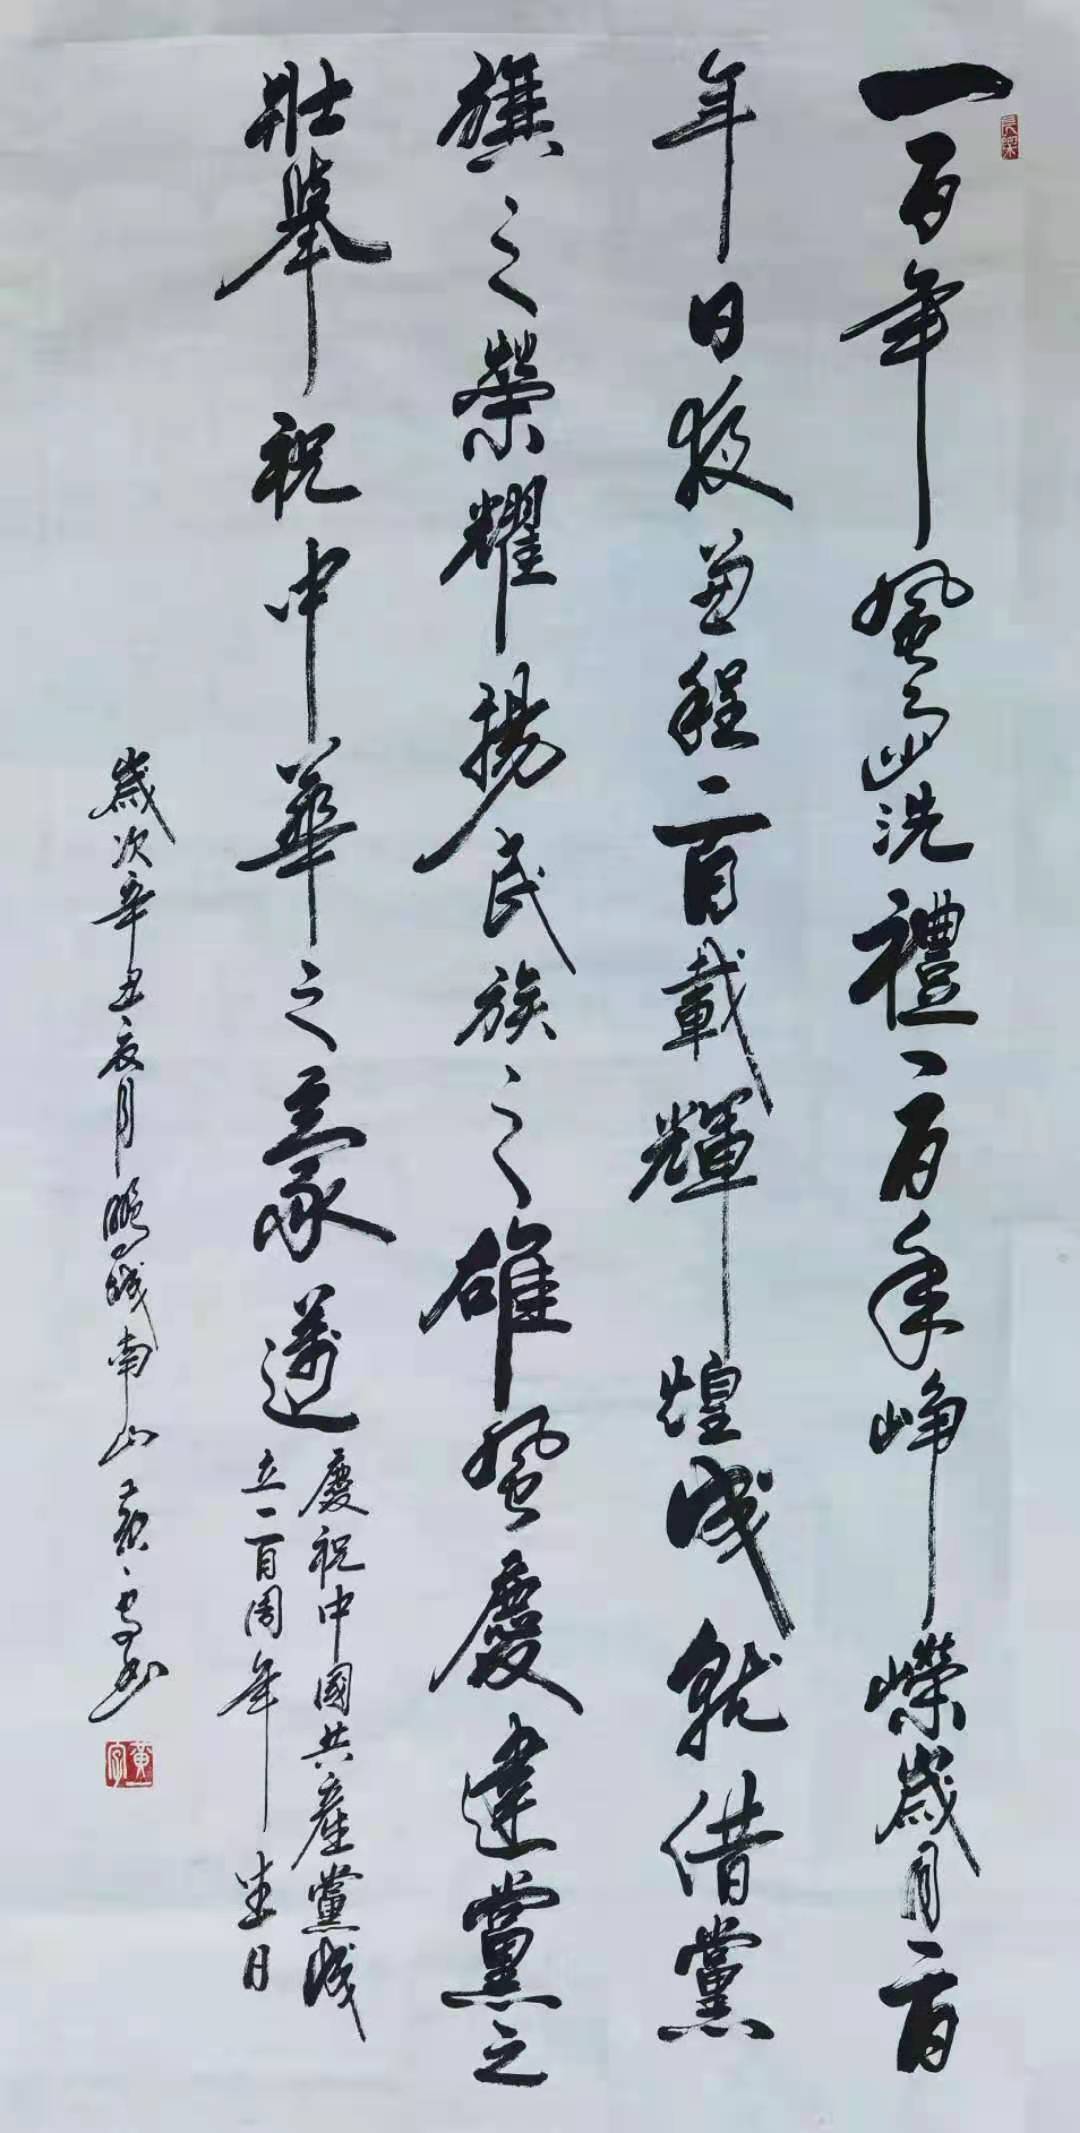 一百年風雨洗禮一百年崢嶸歲月一百
年日夜兼程一百載輝煌成就借黨
旗之榮耀揚民族之雄風慶建黨之
壯舉祝中華之豪邁
慶祝中國共產黨成
立一百周年生日
歲次辛丑辰月鵬城南山黃一书